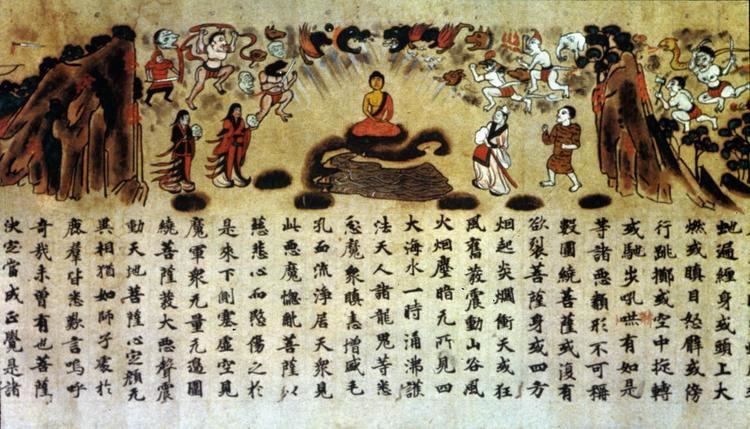 虵遍纏身或頭上大
燃或瞋目怒臂或傍
行跳擲或空中旋轉
或馳步吼哧有如是
等諸惡類形不可稱
數圍繞菩薩或復有
欲裂菩薩身或四方
烟起炎爓衝天或狂
風奮發震動山谷風
火烟塵暗无所見四
大海水一時涌沸護
法天人諸龍鬼等悉
忿魔衆瞋恚增盛毛
孔血流淨居天衆見
此惡魔惱亂菩薩以
慈悲心而愍傷之於
是來下側塞虛空見
魔軍衆无量无邊圍
繞菩薩發大惡聲震
動天地菩薩心定顏无
異相猶如師子處於
鹿群皆悉歎言嗚呼
奇哉未曾有也菩薩
決定當成正覺是諸